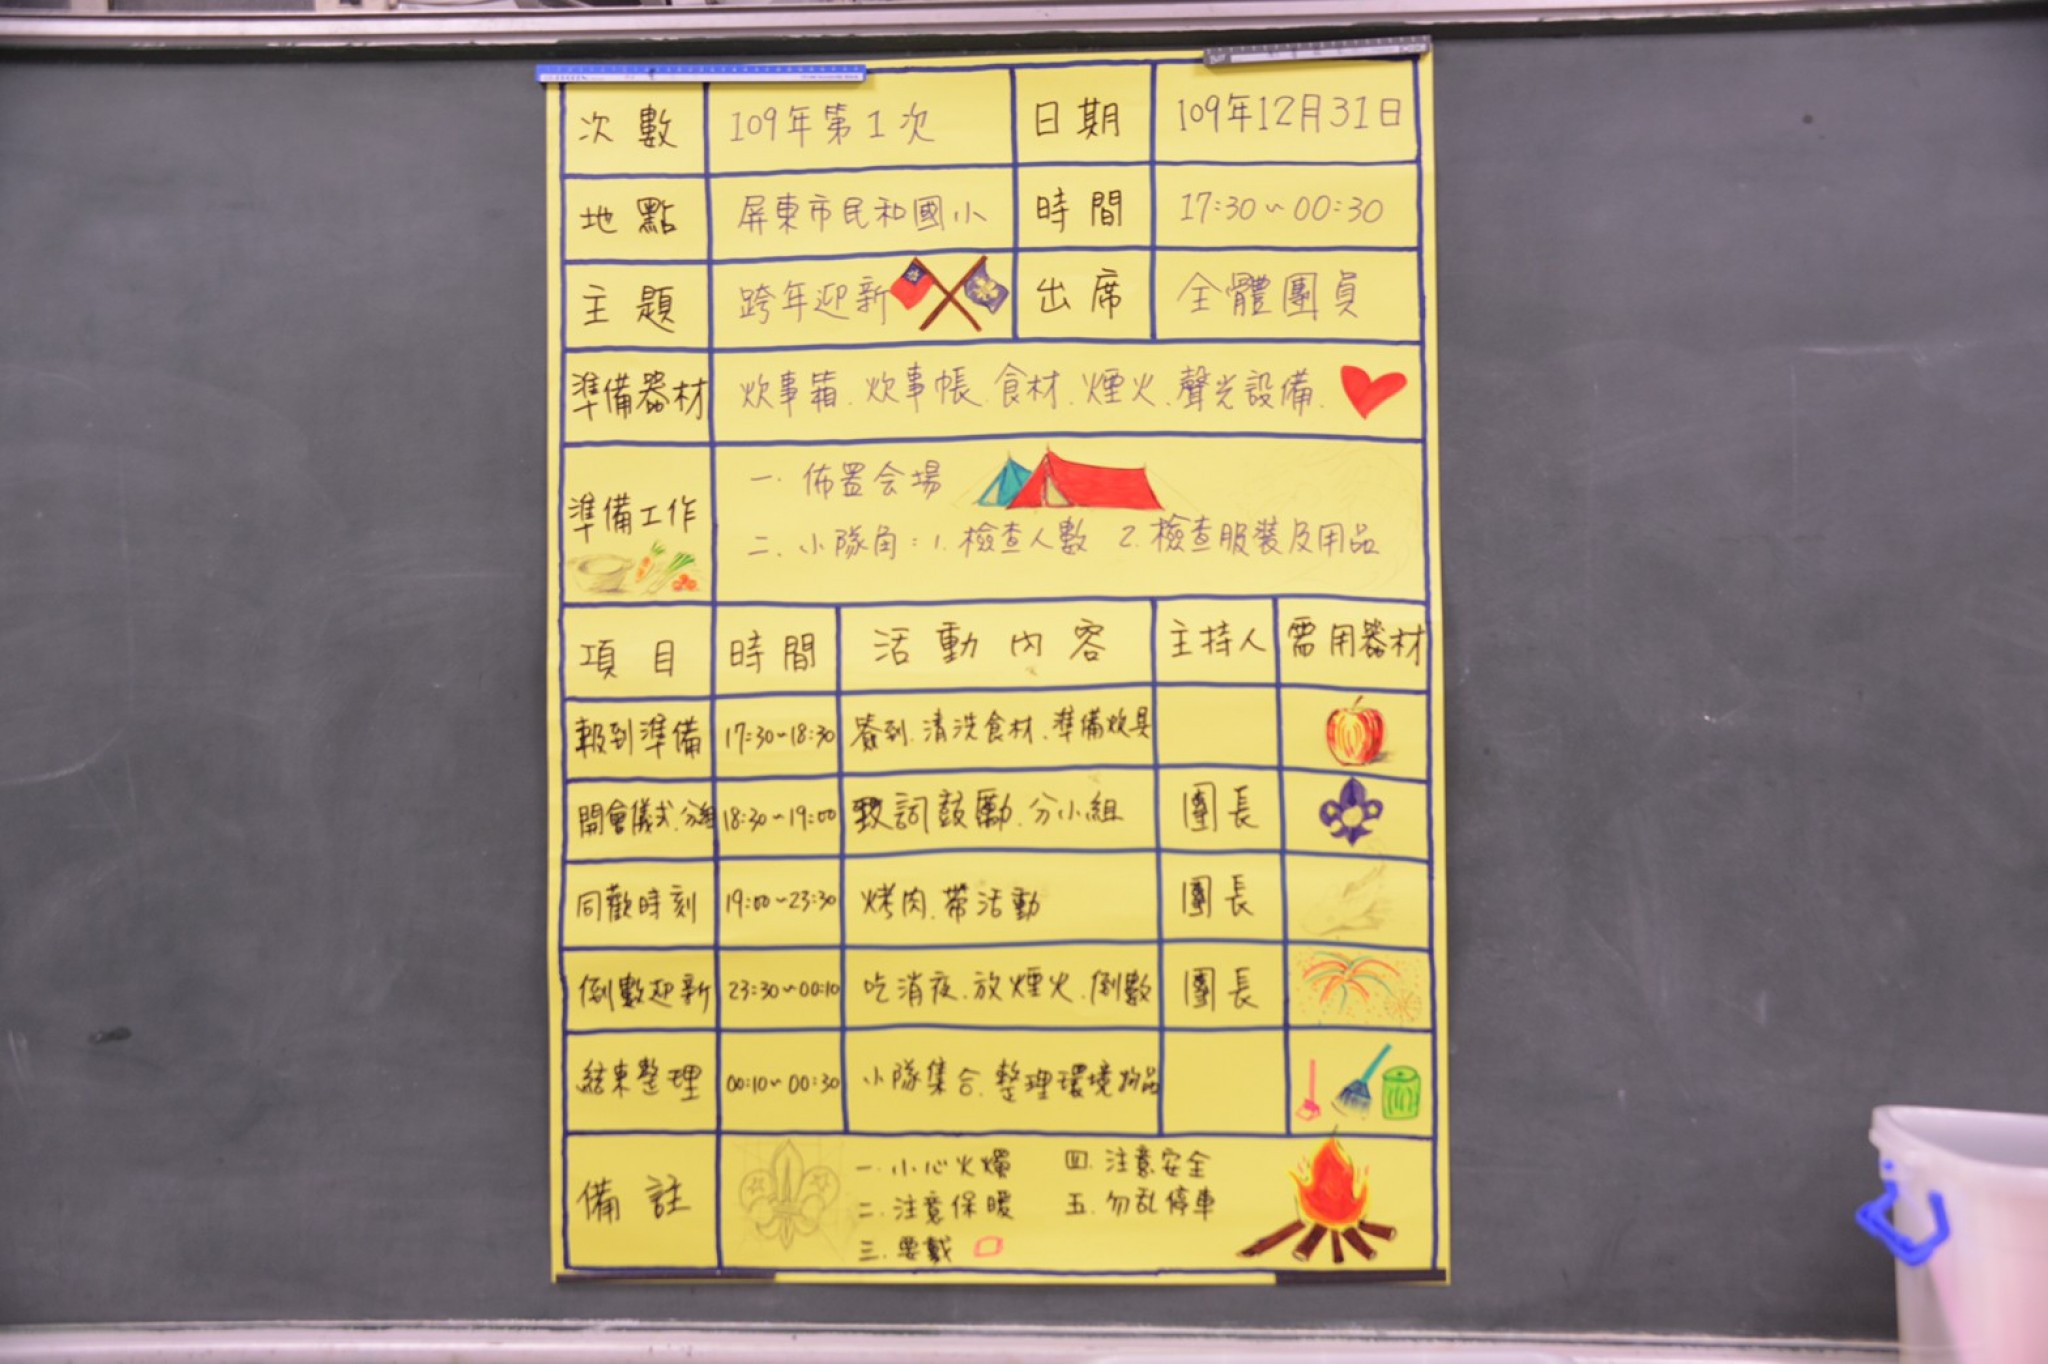 次數 109年第1次 日期 109年12月31日
地點 屏東市民和國小 時間 17:30~00:30
主題 跨年迎新 出席 全體團員
準備器材 炊事箱、炊事帳、食材、煙火、聲光設備、
準備工作
一、佈置会場
二、小隊角:1.檢查人數 2.檢查服裝及用品
項目 時間 活動內容 主持人 需用器材
報到準備 17:30~18:30 簽到、清洗食材、準備炊具
開會儀式、分組 18:30~19:00 致詞鼓勵、分小組 團長
同歡時刻 19:00~23:30 烤肉、帶活動 團長
倒數迎新 23:30~00:10 吃消夜、放煙火、倒數 團長
結束整理 00:10~00:30 小隊集合、整理環境物品
備註
一、小心火燭 四、注意安全
二、注意保暖 五、勿乱停車
三、要戴